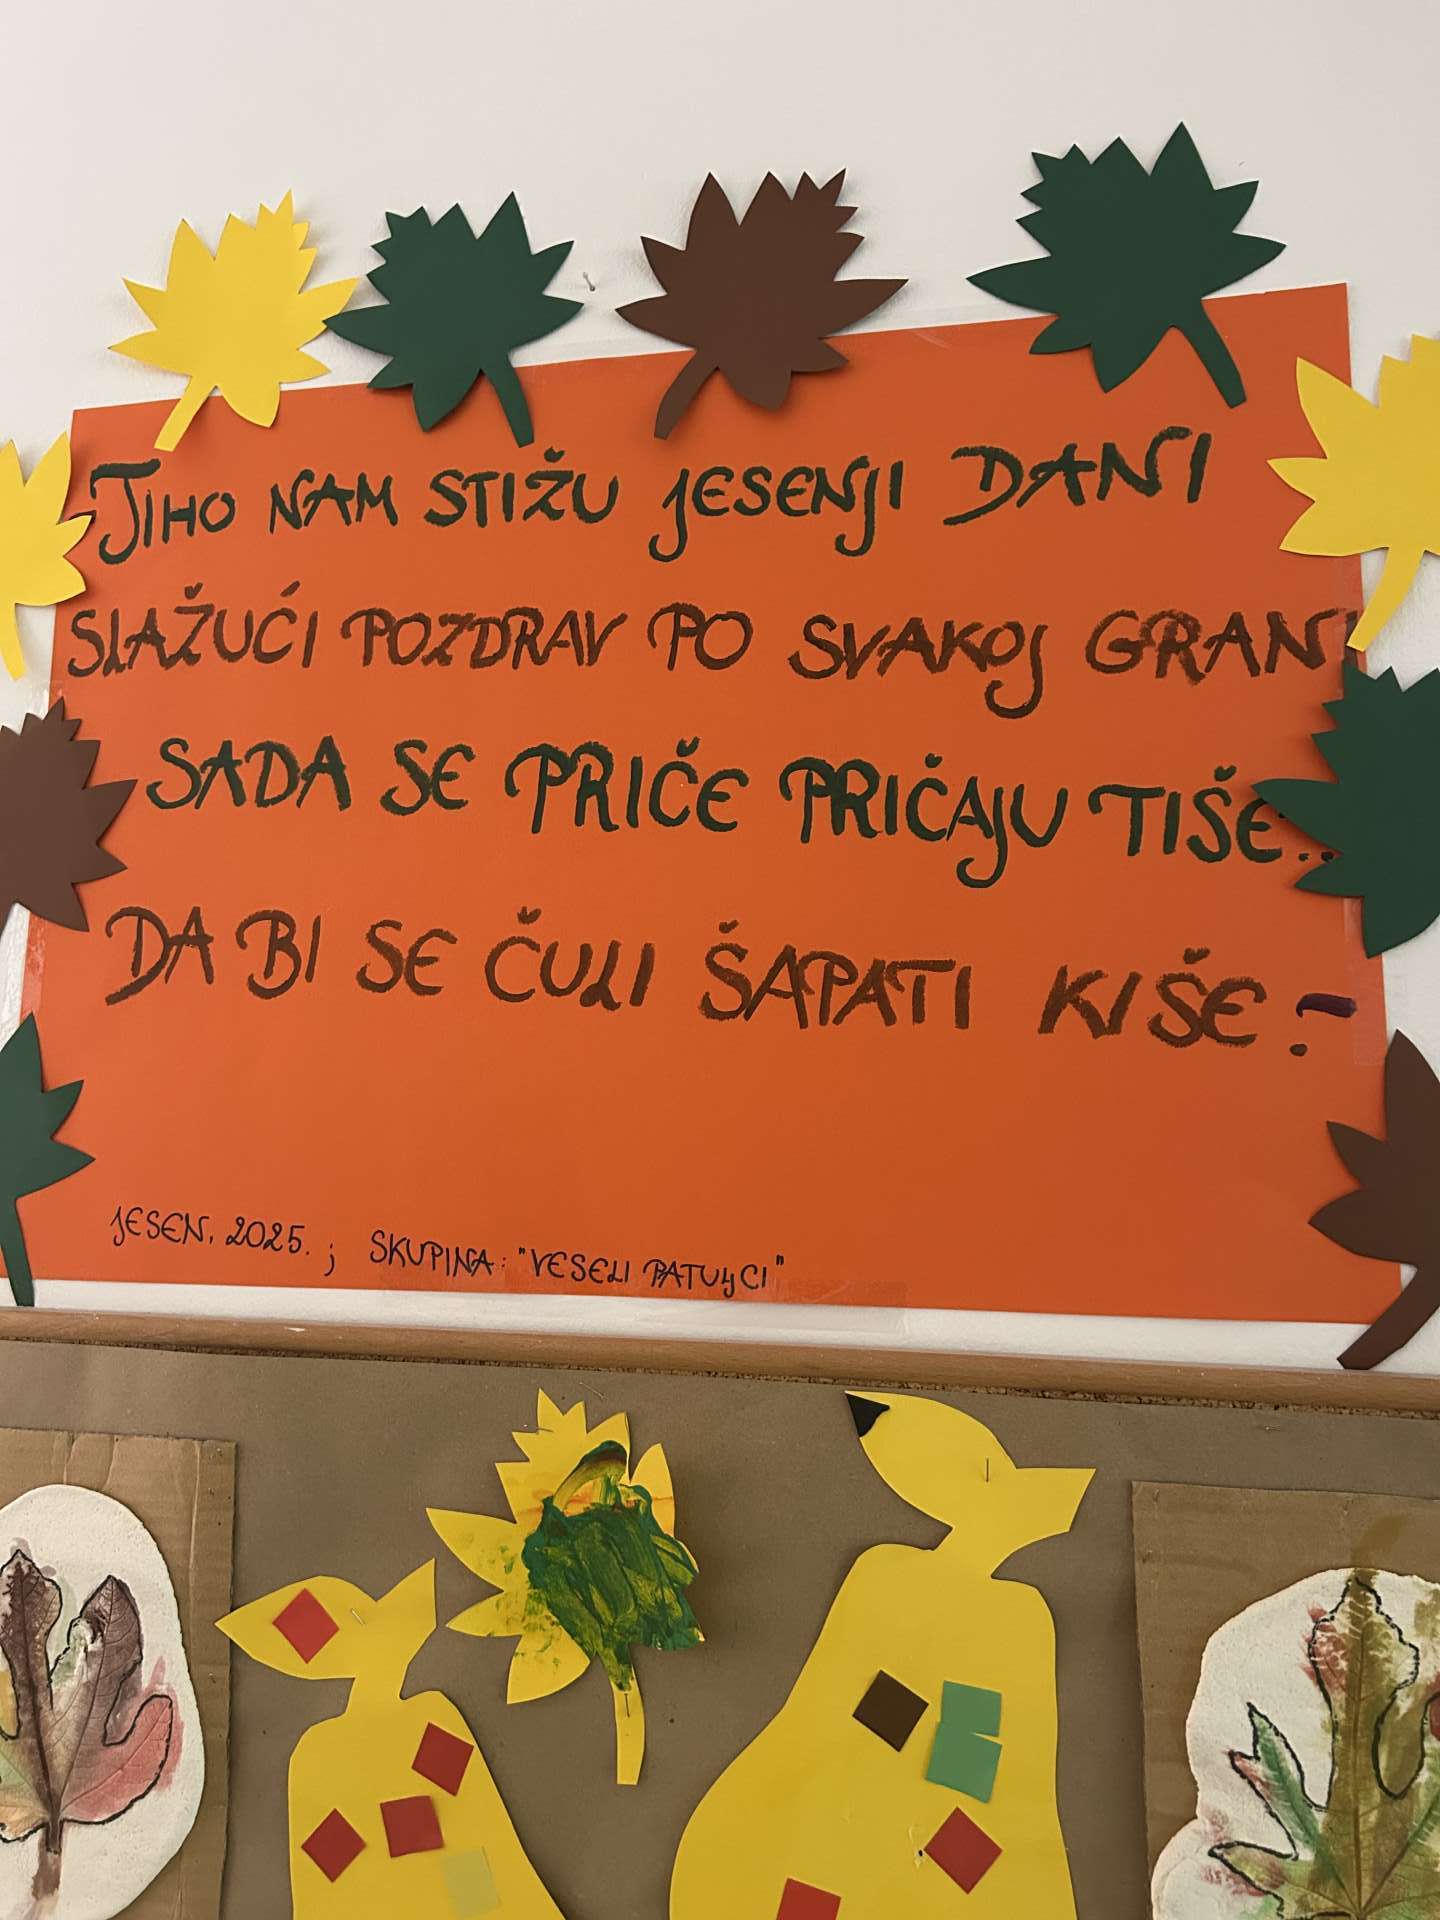 TIHO NAM STIŽU JESENJI DANI
SLAŽUĆI POZDRAV PO SVAKOJ GRANI
SADA SE PRIČE PRIČAJU TIŠE...
DA BI SE ČULI ŠAPATI KIŠE!
JESEN, 2025. ; SKUPINA: "VESELI PATULJCI"